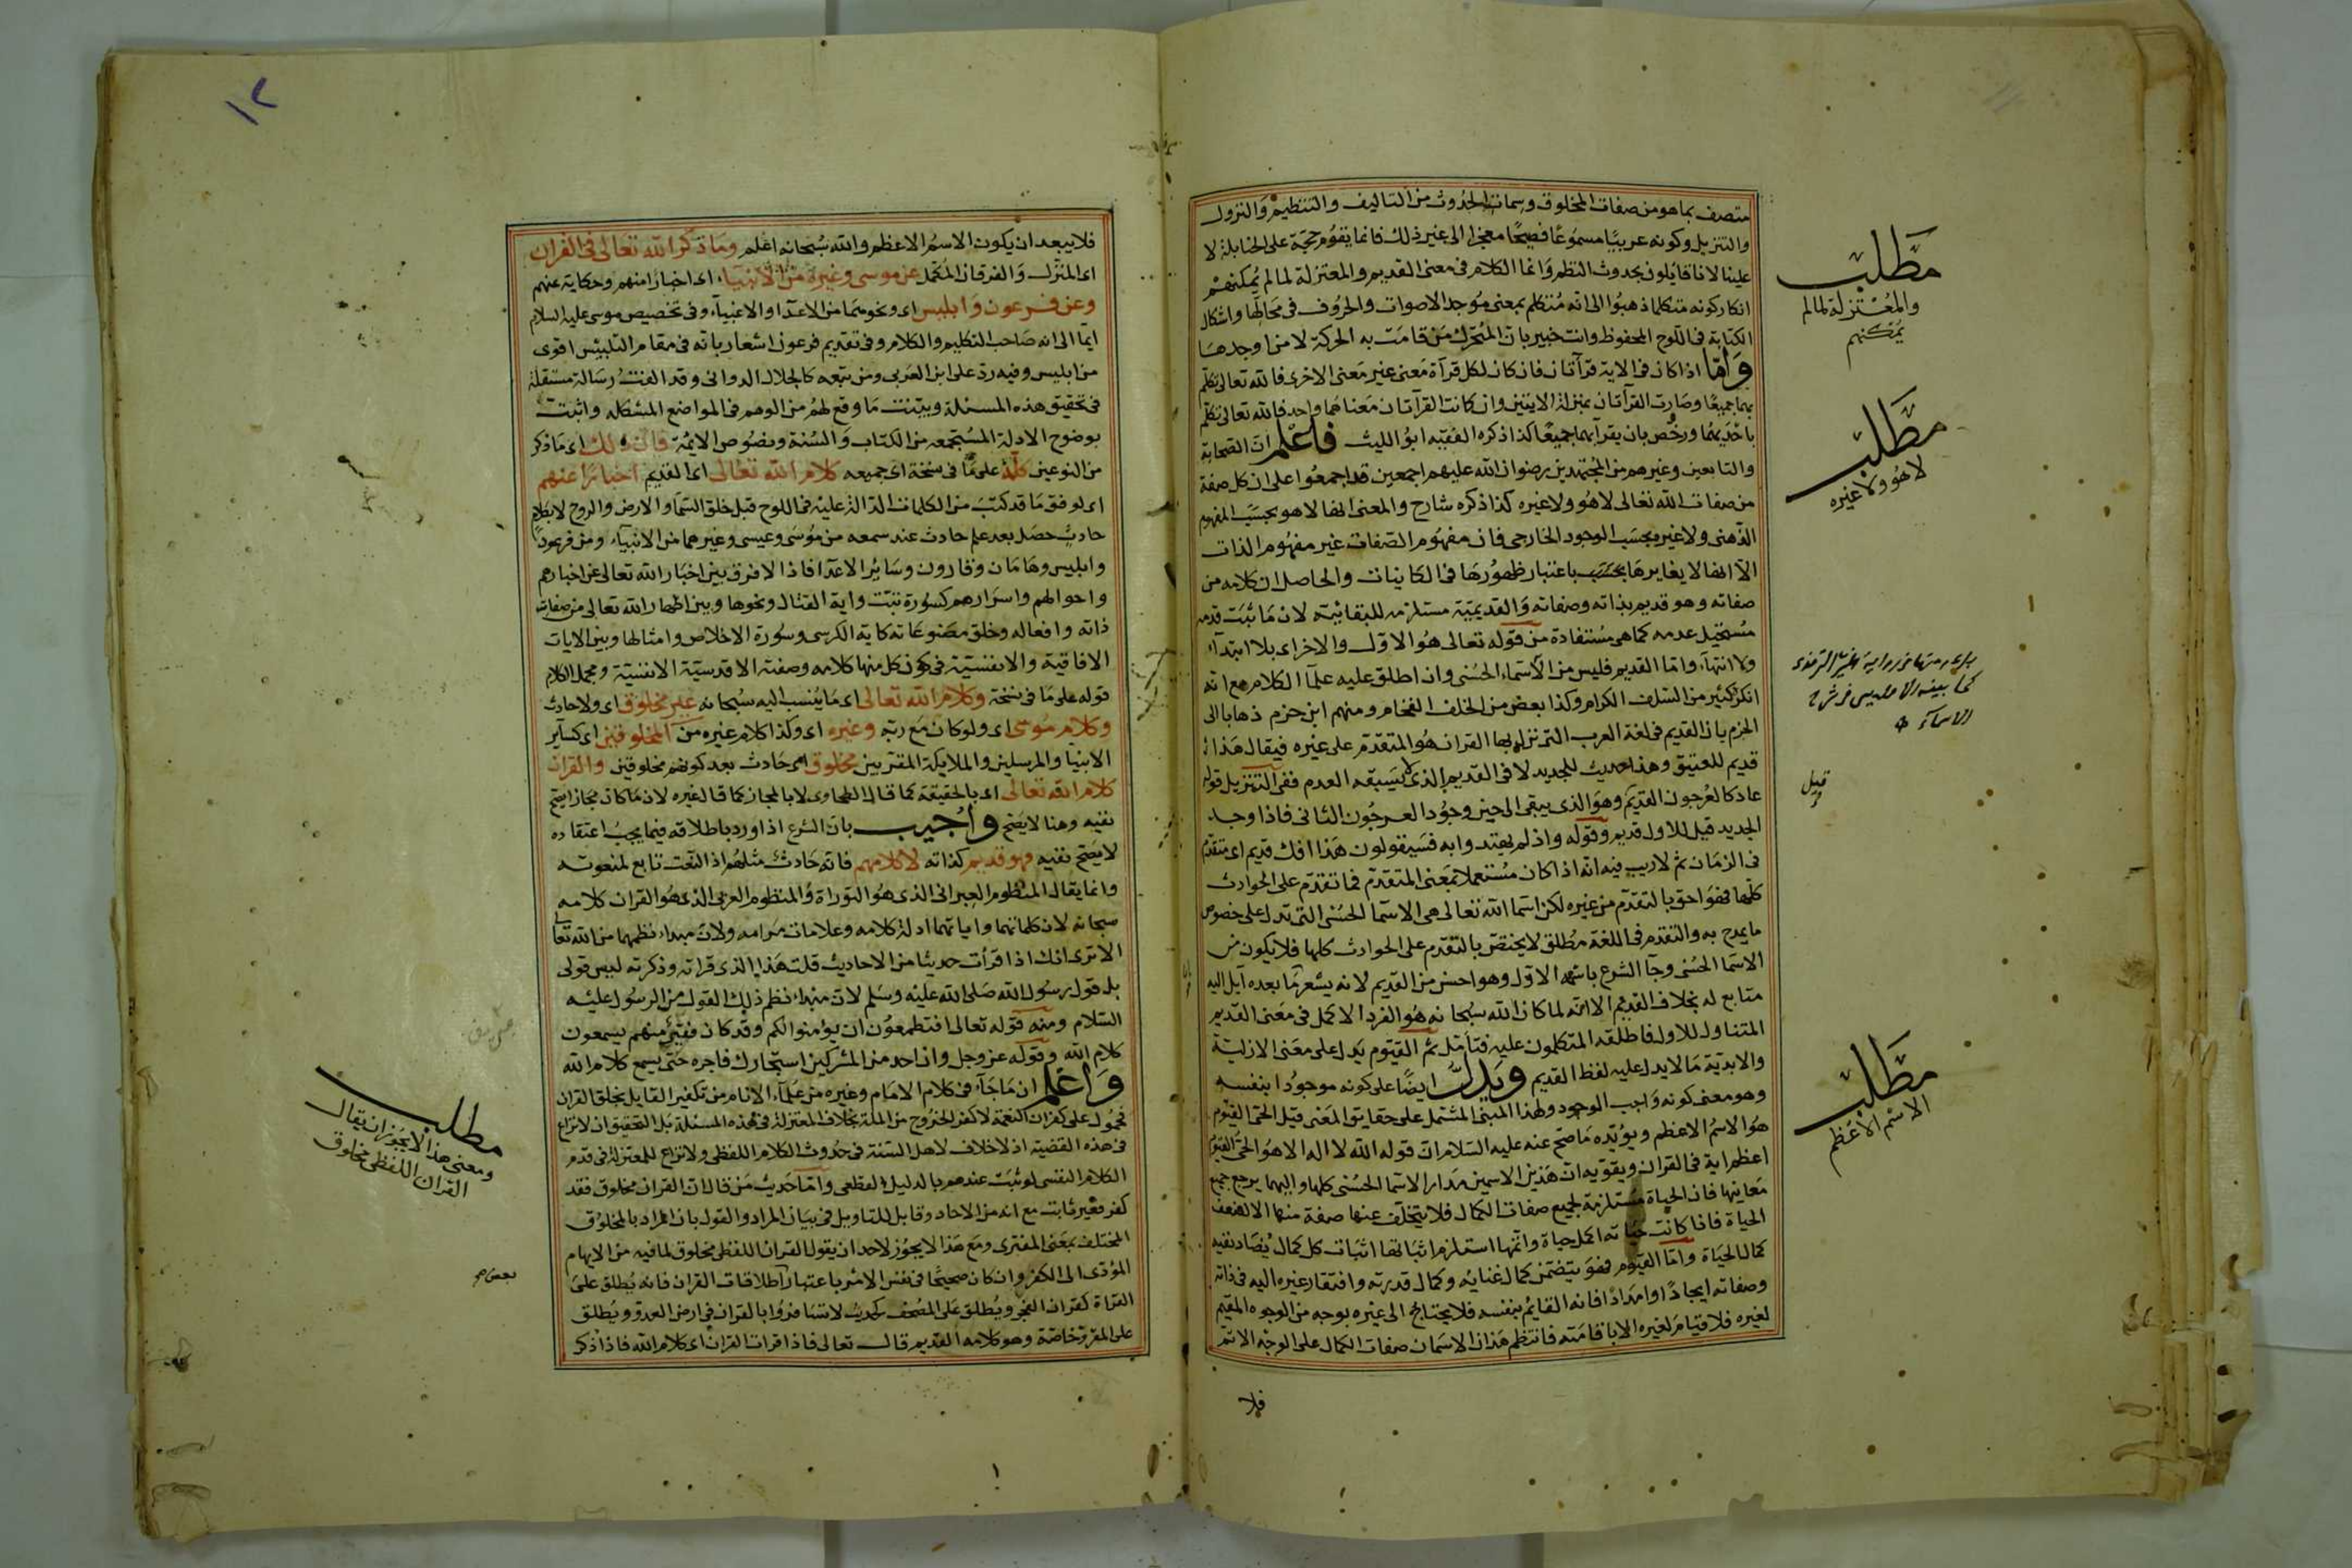 متصف بما هو من صفات المخلوق وسمات الحدوث من التاليف والتنظيم والنزول
والتنزيل وكونه عربيًا مسموعًا فصيحًا معجزا الى غير ذلك فانما يقوم حجة على الحنابلة لا
علينا لانا قايلون بحدوث النظم وانما الكلام فى معنى القديم والمعتزلة لما لم يمكنهم
انكار كونه متكلما ذهبوا الى انه متكلم بمعنى موجد الاصوات والحروف فى محالها واشكال
الكتابة فى اللوح المحفوظ وانت خبير بان المتحرك من قامت به الحركة لا من اوجدها
واما اذا كان فى الاية قرآتان فان كان لكل قرآة معنى غير معنى الاخرى فالله تعالى تكلم
بهما جميعًا وصارت القرآتان بمنزلة الايتين وان كانت القرآتان معناهما واحد فالله تعالى تكلم
باحديهما ورخّص بان يقرأ بهما جميعًا كذا ذكره الفقيه ابو الليث فاعلم ان الصحابة
والتابعين وغيرهم من المجتهدين رضوان الله عليهم اجمعين قد اجمعوا على ان كل صفة
من صفات الله تعالى لا هو ولا غيره كذا ذكره شارح والمعنى انها لا هو بحسب المفهوم
الذهنى ولا غيره بحسب الوجود الخارجى فان مفهوم الصفات غير مفهوم الذات
الا انها لا يغايرها بحسب باعتبار ظهورها فى الكاينات والحاصل ان كلامه من
صفاته وهو قديم بذاته وصفاته والقديمية مستلزمه للبقائية لان ما ثبت قدمه
مستحيل عدمه كما هى مستفادة من قوله تعالى هو الاول والاخر اى بلا ابتدآء
ولا انتهآء واما القديم فليس من الاسماء الحسنى وان اطلق عليه علمآ الكلام مع انه
انكر كثير من السلف الكرام وكذا بعض من الخلف الفخام ومنهم ابن حزم ذهابا الى
الجزم بان القديم فى لغة العرب التى نزل بها القران هو المتقدم على غيره فيقال هذا
قديم للعتيق وهذا حديث للجديد لا فى القديم الذى لا يسبقه العدم ففى التنزيل قوله
عاد كالعرجون القديم وهو الذى يبقى الى حين وجود العرجون الثانى فاذا وجد
الجديد قيل للاول قديم وقوله واذ لم يهتدوا به فسيقولون هذا افك قديم اى متقدم
فى الزمان ثم لا ريب فيه انه اذا كان مستعملا بمعنى المتقدم فما تقدم على الحوادث
كلها فهو احق بالتقدم من غيره لكن اسما الله تعالى هى الاسما الحسنى التى تدل على خصوص
ما يمدح به والتقدم فى اللغة مطلق لا يختص بالتقدم على الحوادث كلها فلا يكون من
الاسما الحسنى وجآ الشرع باسمه الاول وهو احسن من القديم لانه يشعر بما بعده آيل اليه
متابع له بخلاف القديم الا انه لما كان الله سبحانه هو الفرد الاكمل فى معنى القديم
المتناول للاول فاطلقه المتكلمون عليه فتأمل ثم القيوم يدل على معنى الازلية
والابدية ما لا يدل عليه لفظ القديم ويدل ايضًا على كونه موجودا بنفسه
وهو معنى كونه واجب الوجود ولهذا المبنى المشتمل على حقايق المعنى قيل الحى القيوم
هو الاسم الاعظم ويؤيده ما صح عنه عليه السلام ان قوله الله لا اله الا هو الحى القيوم
اعظم اية فى القران ويقويه ان هذين الاسمين مدار الاسما الحسنى كلها واليهما يرجع جميع
معانيها فان الحياة مستلزمة لجميع صفات الكمال فلا يتخلف عنها صفة منها الا لضعف
الحياة فاذا كانت حياته اكمل حياة واتمها استلزم اثباتها اثبات كل كمال يضاد نفيه
كمال الحياة واما القيوم فهو يتضمن كمال غنايه وكمال قدرته وافتقار غيره اليه فى ذاته
وصفاته ايجادًا وامدادًا فانه القائم بنفسه فلا يحتاج الى غيره بوجه من الوجوه المقيم
لغيره فلا قيام لغيره الا باقامته فانتظم هذان الاسمان صفات الكمال على الوجه الاتم
فلا
مطلب
والمعتزلة لما لم
يمكنهم
مطلب
لا هو ولا غيره
قيل
مطلب
الاسم الاعظم
١٢
فلا يبعد ان يكون الاسم الاعظم والله سبحانه اعلم وما ذكر الله تعالى فى القران
اى المنزل والفرقان المكمل عن موسى وغيره من الانبياء اى اخبارا منهم وحكاية عنهم
وعن فرعون وابليس اى ونحوهما من الاعدا والاغبيآء وفى تخصيص موسى عليه السلام
ايما الى انه صاحب التكليم والكلام وفى تقديم فرعون اشعار بانه فى مقام التلبيس اقوى
من ابليس وفيه رد على ابن العربى ومن تبعه كالجلال الدوانى وقد الفت رسالة مستقلة
فى تحقيق هذه المسئلة وبينت ما وقع لهم من الوهم فى المواضع المشكله واثبت
بوضوح الادلة المستجمعه من الكتاب والسنة ونصوص الايمة فان ذلك اى ما ذكر
من النوعين كله على ما فى نسخة اى جميعه كلام الله تعالى اى القديم اخبارا عنهم
اى لوفق ما قد كتب من الكلمات الدالة عليه فى اللوح قبل خلق السما والارض والروح لا بكلام
حادث حصل بعد علم حادث عند سمعه من موسى وعيسى وغيرهما من الانبيآء ومن فرعون
وابليس وهامان وقارون وسائر الاعدا فاذا لا فرق بين اخبار الله تعالى عن اخبارهم
واحوالهم واسرارهم كسورة تبت واية القتال ونحوها وبين اظهار الله تعالى من صفات
ذاته وافعاله وخلق مصنوعاته كاية الكرسى وسورة الاخلاص وامثالها وبين الايات
الافاقية والانفسية فى كون كل منها كلامه وصفته الاقدسية الانفسية ومجمل الكلام
قوله على ما فى نسخة وكلام الله تعالى اى ما ينسب اليه سبحانه غير مخلوق اى ولا حادث
وكلام موسى اى ولو كان مع ربه وغيره اى وكذا كلام غيره من المخلوقين اى كساير
الانبيا والمرسلين والملايكة المقربين مخلوق اى حادث بعد كونهم مخلوقين والقران
كلام الله تعالى اى بالحقيقة كما قال الطحاوى لا بالمجاز كما قال غيره لان ما كان مجازا يصح
نفيه وهنا لا يصح واجيب بان الشرع اذا ورد باطلاقه فيما يجب اعتقاده
لا يصح نفيه فهو قديم كذاته لا كلامهم فانه حادث مثلهم اذ النعت تابع لمنعوته
وانما يقال المنظوم العبرانى الذى هو التوراة والمنظوم العربى الذى هو القران كلامه
سبحانه لان كلماتهما واياتهما ادلة كلامه وعلامات مرامه ولان مبدا نظمهما من الله تعالى
الا ترى انك اذا قرأت حديثا من الاحاديث قلت هذا الذى قراته وذكرته ليس قولى
بل قول رسول الله صلى الله عليه وسلم لان مبدا نظم ذلك القول من الرسول عليه
السلام ومنه قوله تعالى افتطمعون ان يؤمنوا لكم وقد كان فريق منهم يسمعون
كلام الله وقوله عز وجل وان احد من المشركين استجارك فاجره حتى يسمع كلام الله
واعلم ان ما جآء فى كلام الامام وغيره من علمآء الانام من تكفير القايل بخلق القران
فمحمول على كفران النعمة لا كفر الخروج من الملة بخلاف المعتزلة فى هذه المسئلة بل التحقيق ان لا نزاع
فى هذه القضية اذ لا خلاف لاهل السنة فى حدوث الكلام اللفظى ولا نزاع للمعتزلة فى قدم
الكلام النفسى لو ثبت عندهم بالدليل القطعى واما حديث من قال ان القران مخلوق فقد
كفر فغير ثابت مع انه من الاحاد وقابل للتاويل فى بيان المراد والقول بان المراد بالمخلوق
المختلف بمعنى المفترى ومع هذا لا يجوز لاحد ان يقول القران اللفظى مخلوق لما فيه من الايهام
المؤدى الى الكفر وان كان صحيحًا فى نفس الامر باعتبار اطلاقات القران فانه يطلق على
القراة كقران الفجر ويطلق على المصحف كحديث لا تسافروا بالقران فى ارض العدو ويطلق
على المقرو خاصة وهو كلامه القديم قال تعالى فاذا قرات القران اى كلام الله فاذا ذكر
مطلب
ومعنى هذا لا يجوز ان يقال
القران اللفظى مخلوق